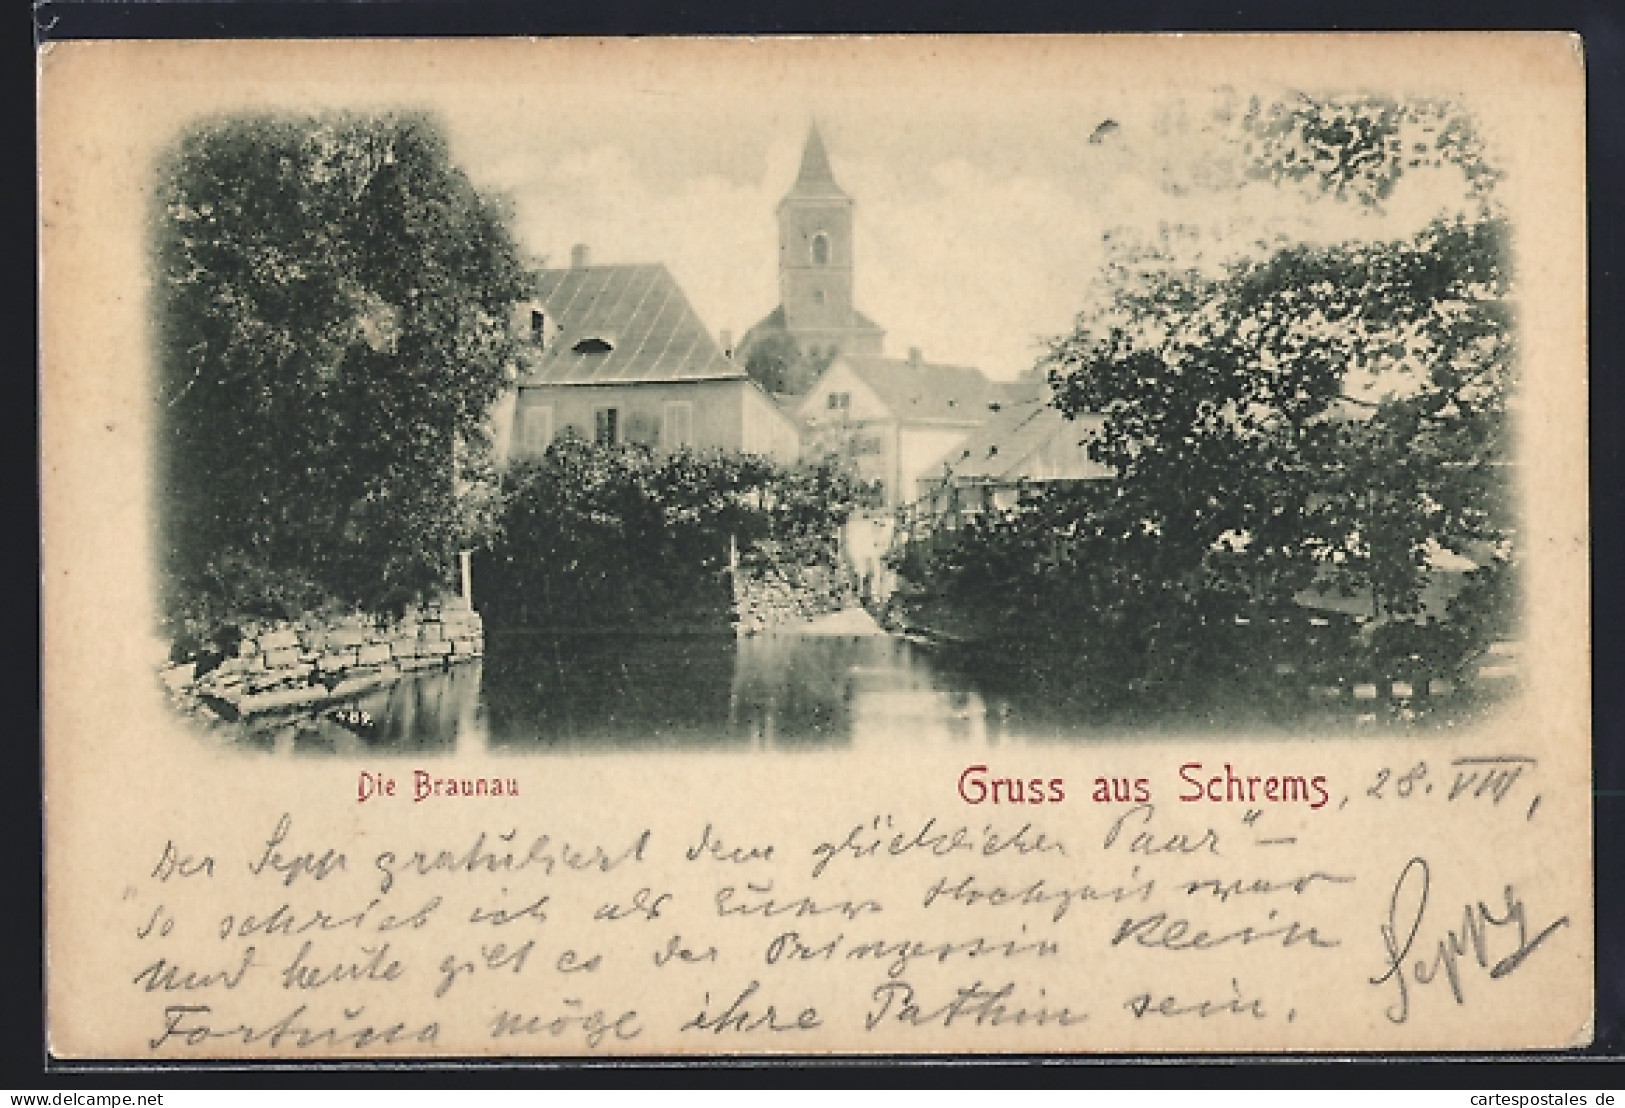 489.
Die Braunau
Gruss aus Schrems, 28. VIII,
Der Sepp gratuliert dem glücklichen Paar" —
"So schrieb ich als Eure Hochzeit war
Und heute gilt es der Prinzessin Klein
Fortuna möge ihre Pathin sein.
Seppy
Delcampe.net
cartespostales de